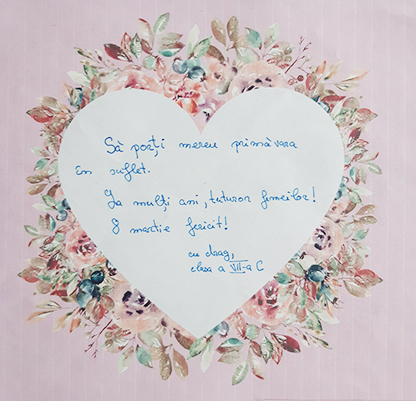 Să porți mereu primăvara
în suflet.
La mulți ani, tuturor femeilor!
8 martie fericit!
cu drag,
clasa a VII-a C